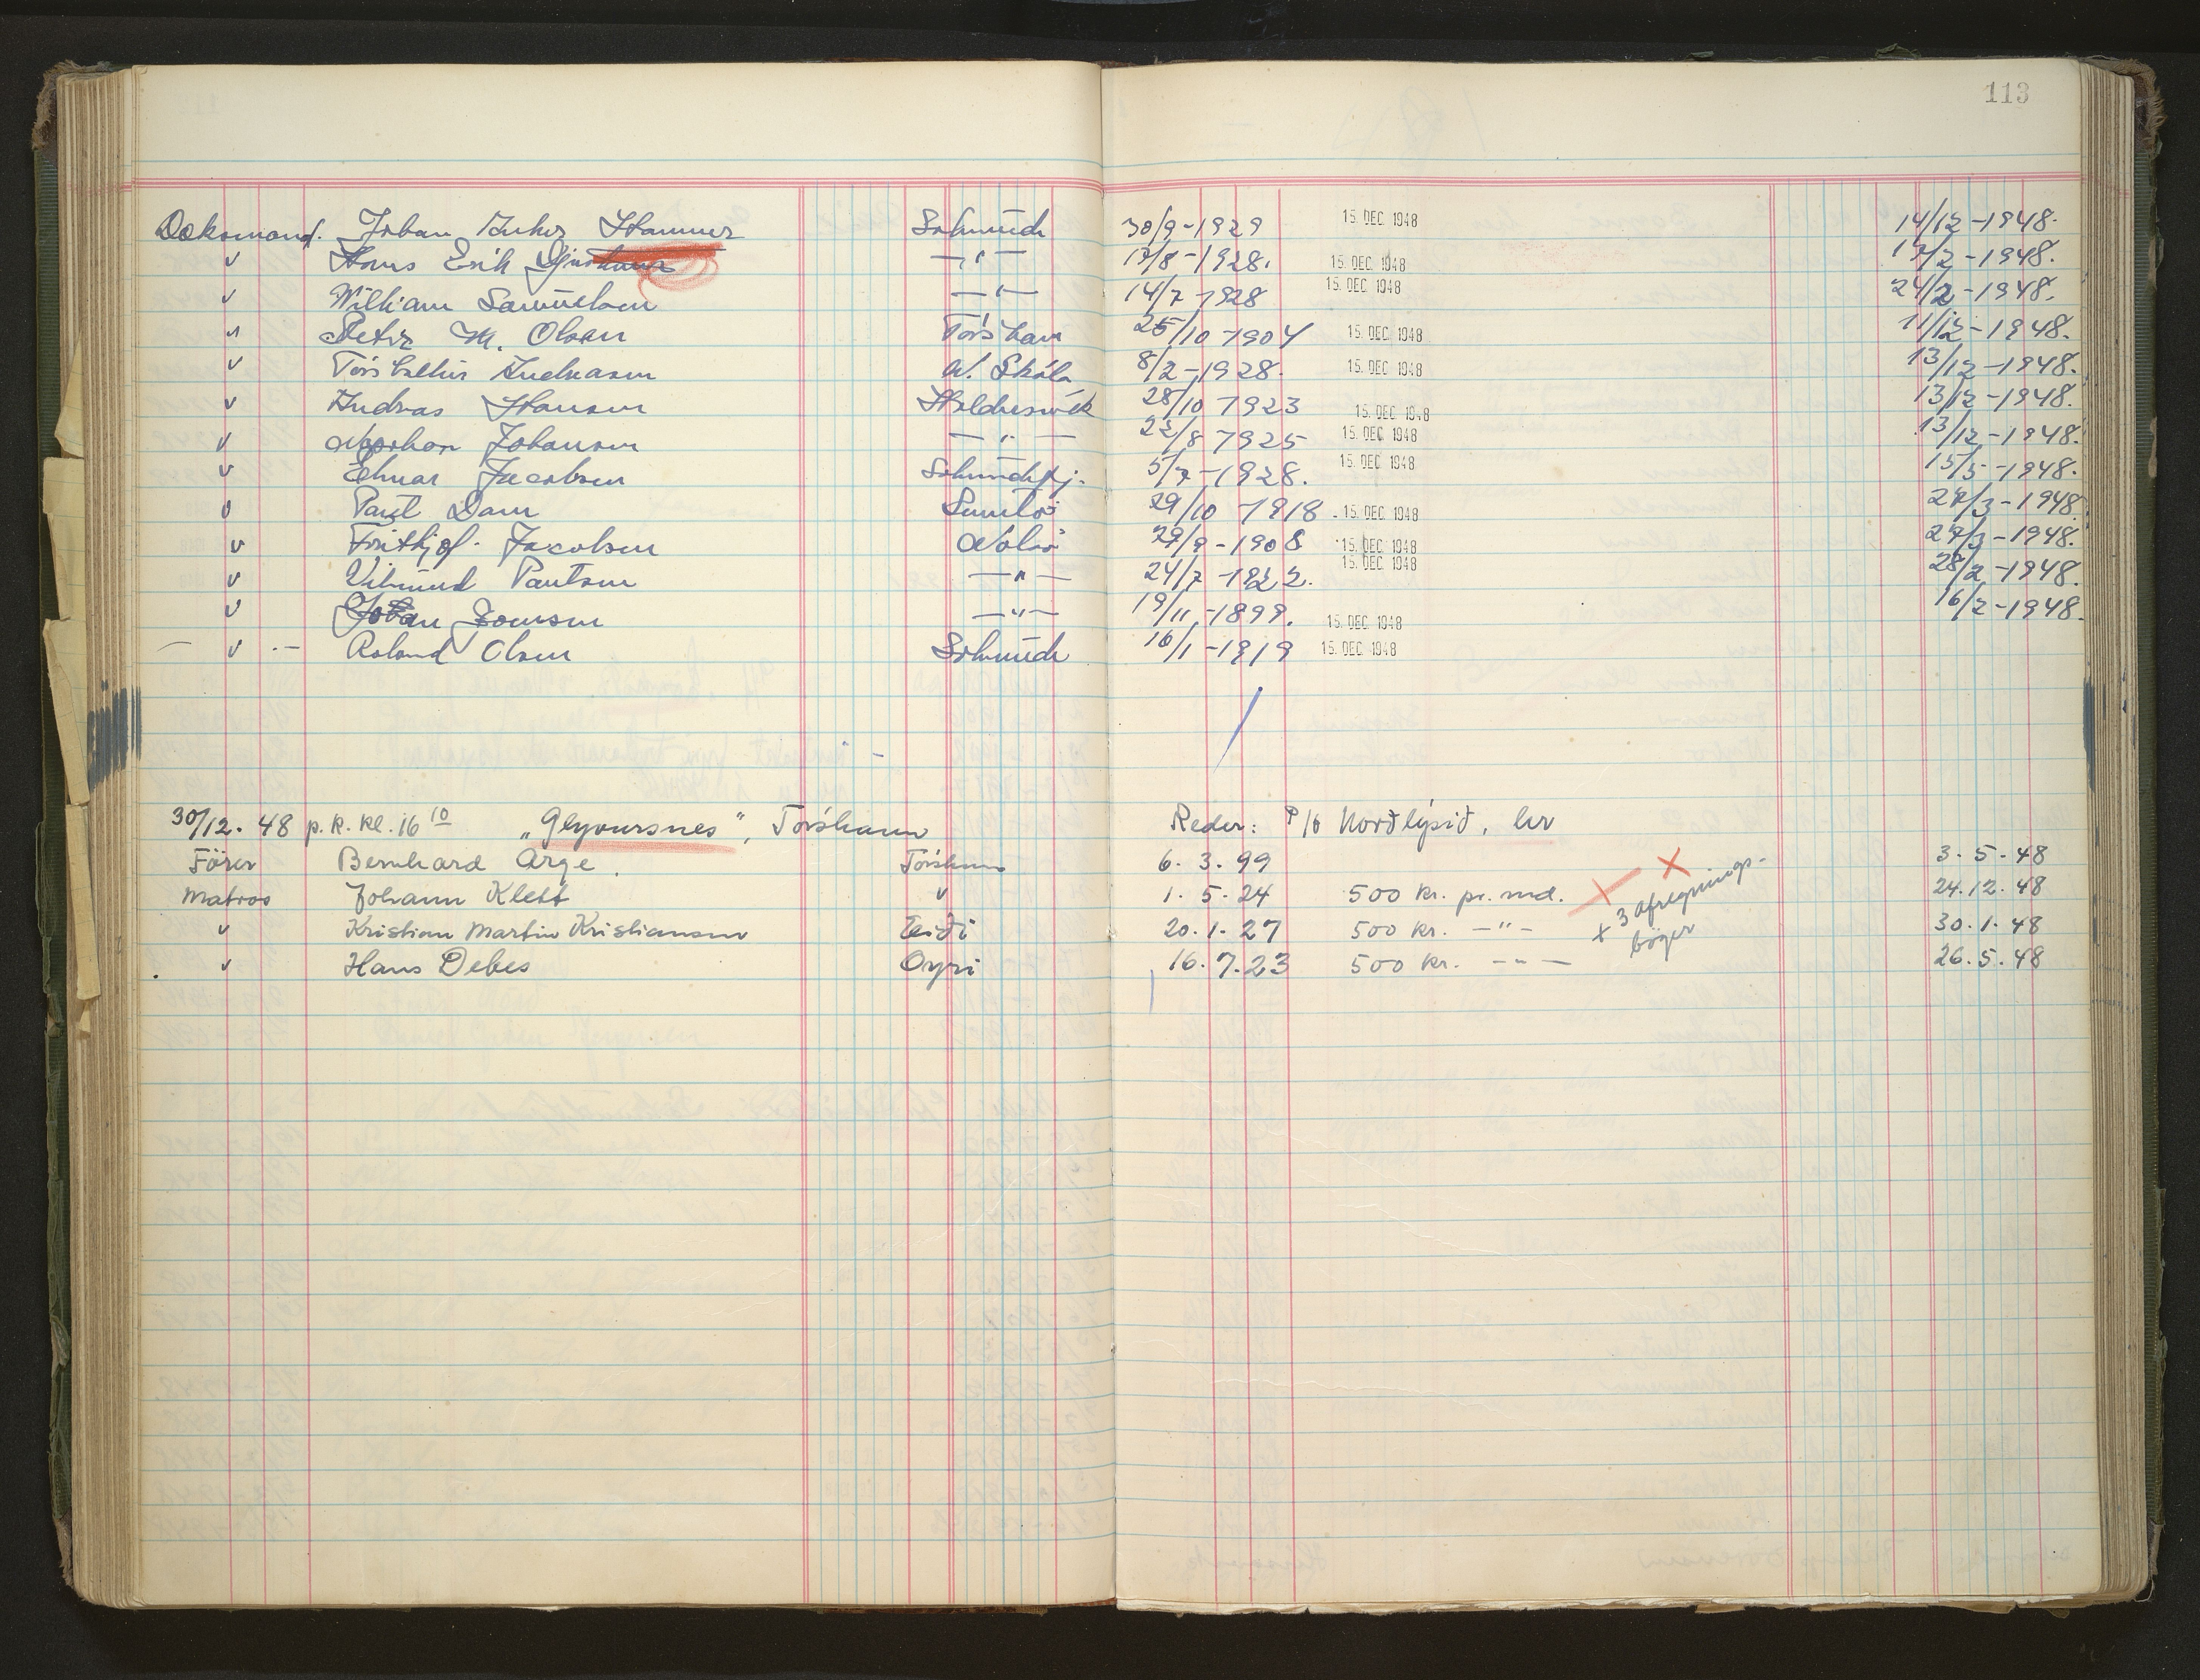 113
Deksmand. Johan Hammer 30/9-1929 15. DEC. 1948 14/12-1948.
v Hans Erik —"— 17/8-1928. 15. DEC. 1948 /2-1948.
v William Samuelsen —"— 14/7-1928 15. DEC. 1948 24/2-1948.
" Peter M. Olsen Tórshavn 25/10-1904 15. DEC. 1948 11/12-1948.
v 8/2-1928. 15. DEC. 1948 13/12-1948.
v Andras Hansen Haldersvik 28/10-1923 15. DEC. 1948 13/12-1948.
v Johansen —"— 22/8-1925 15. DEC. 1948 13/12-1948.
v Jacobsen 5/7-1928. 15. DEC. 1948 15/5-1948.
v Paul Dam 29/10-1918. 15. DEC. 1948 /3-1948
v Frithjof Jacobsen Nolsö 29/9-1908 15. DEC. 1948 /3-1948.
v Vilmund —"— 24/7-1922. 15. DEC. 1948 28/2-1948.
v Johan Joensen —"— 19/11-1899. 15. DEC. 1948 16/2-1948.
— v — Roland Olsen 16/1-1919 15. DEC. 1948
30/12. 48 p. k. kl. 16 10 "Glyvursnes", Tórshavn Reder: P/f Norðlýsið, hv
Förer Bernhard Arge. Tórshavn 6. 3. 99 x 3. 5. 48
Matros Johann Klett v 1. 5. 24 500 kr. pr. md. x 24.12. 48
v Kristian Martin Kristiansen Eiði 20. 1. 27 500 kr. —"— x 3 afregnings- 30. 1. 48
bøger
v Hans Debes Oyri 16. 7. 23 500 kr. —"— 26. 5. 48